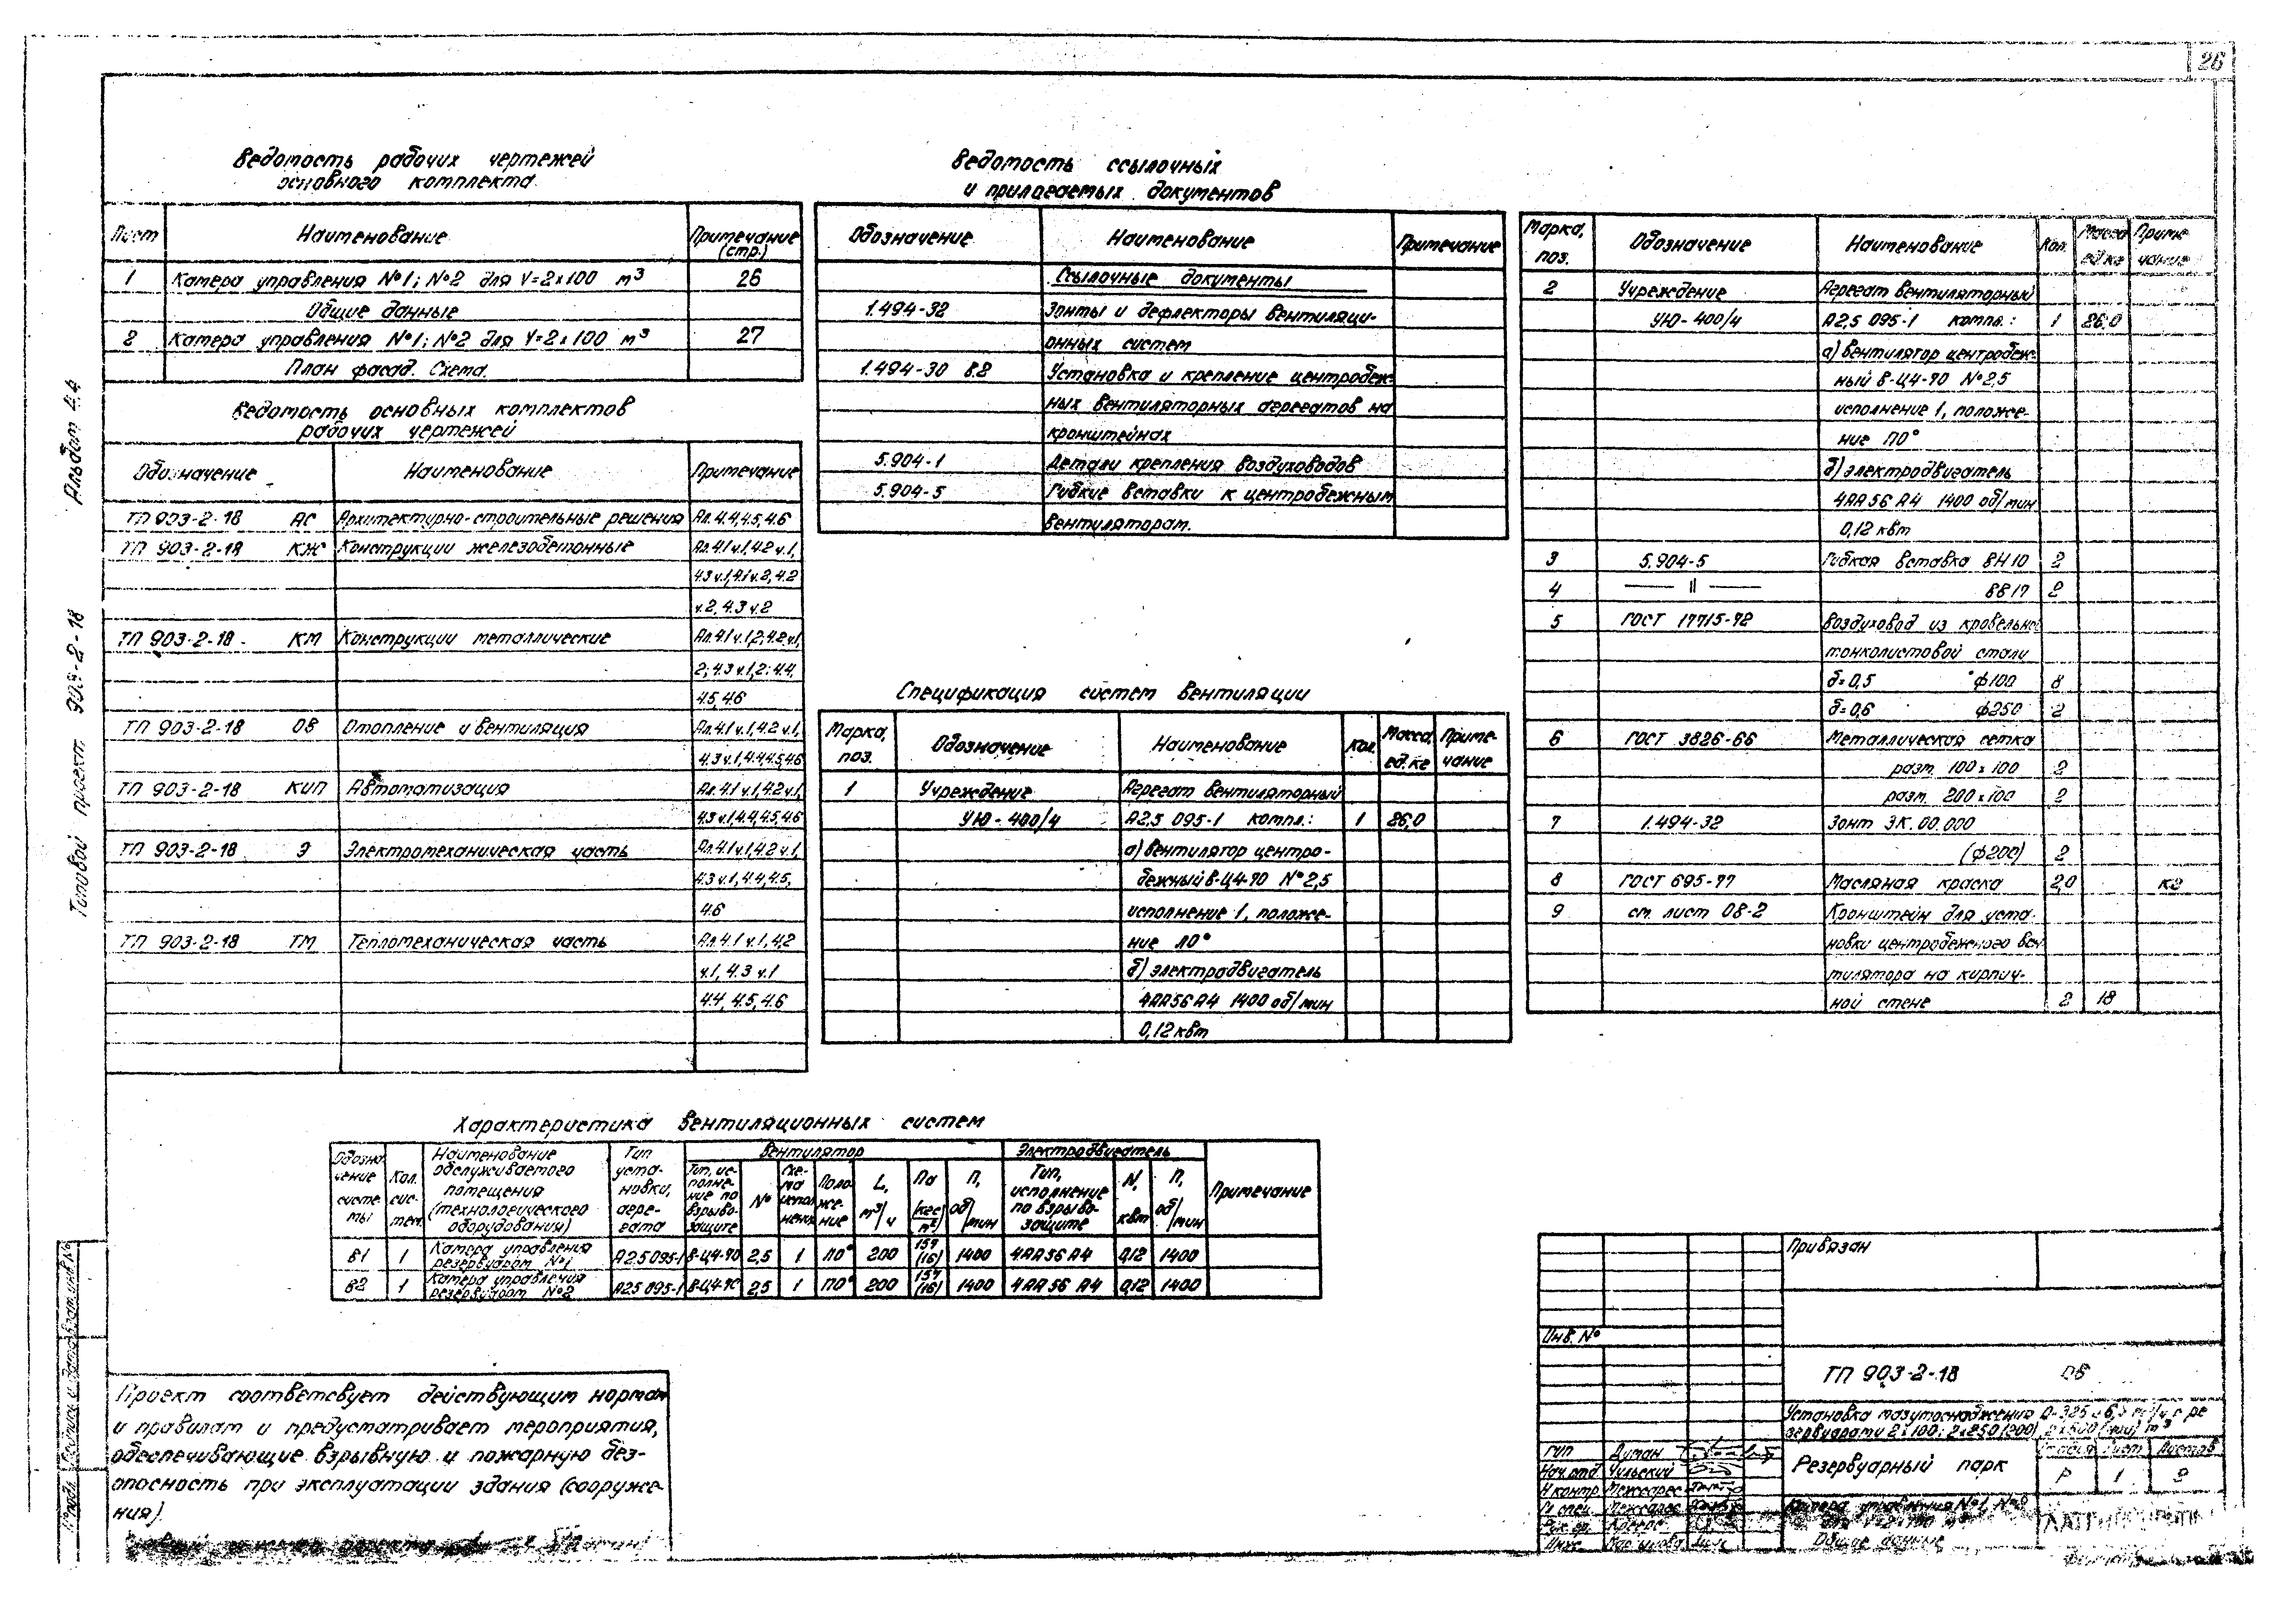 26
Альбом 4.4
Типовой проект 903-2-18
Ведомость рабочих чертежей
основного комплекта
Лист Наименование Примечание (стр.)
1 Камера управления №1; №2 для V=2х100 м³ 26
Общие данные
2 Камера управления №1; №2 для V=2х100 м³ 27
План фасад. Схема.
Ведомость основных комплектов
рабочих чертежей
Обозначение Наименование Примечание
ТП 903-2-18 АС Архитектурно-строительные решения Ал.4.4,4.5,4.6
ТП 903-2-18 КЖ Конструкции железобетонные Ал.4.1 ч.1,4.2 ч.1,
4.3 ч.1,4.1 ч.2,4.2
ч.2, 4.3 ч.2
ТП 903-2-18 КМ Конструкции металлические Ал.4.1 ч.1,2;4.2 ч.1,
2; 4.3 ч.1,2; 4.4,
4.5, 4.6
ТП 903-2-18 ОВ Отопление и вентиляция Ал.4.1 ч.1,4.2 ч.1,
4.3 ч.1,4.4,4.5,4.6
ТП 903-2-18 КИП Автоматизация Ал.4.1 ч.1,4.2 ч.1,
4.3 ч.1,4.4,4.5,4.6
ТП 903-2-18 Э Электромеханическая часть Ал.4.1 ч.1,4.2 ч.1,
4.3 ч.1,4.4,4.5,
4.6
ТП 903-2-18 ТМ Тепломеханическая часть Ал.4.1 ч.1,4.2
ч.1, 4.3 ч.1
4.4, 4.5, 4.6
Ведомость ссылочных
и прилагаемых документов
Обозначение Наименование Примечание
Ссылочные документы
1.494-32 Зонты и дефлекторы вентиляци-
онных систем
1.494-30 в.2 Установка и крепление центробеж-
ных вентиляторных агрегатов на
кронштейнах
5.904-1 Детали крепления воздуховодов
5.904-5 Гибкие вставки к центробежным
вентиляторам.
Спецификация систем вентиляции
Марка, поз. Обозначение Наименование Кол. Масса, ед.кг Примечание
1 Учреждение Агрегат вентиляторный
УЮ-400/4 А2,5 095-1 компл.: 1 26,0
а) вентилятор центро-
бежный В-Ц4-70 №2,5
исполнение 1, положе-
ние Л0°
б) электродвигатель
4АА56А4 1400 об/мин
0,12 квт
Марка, поз. Обозначение Наименование Кол. Масса ед.кг Примечание
2 Учреждение Агрегат вентиляторный
УЮ-400/4 А2,5 095-1 компл.: 1 26,0
а) вентилятор центробеж-
ный В-Ц4-70 №2,5
исполнение 1, положе-
ние П0°
б) электродвигатель
4АА56А4 1400 об/мин
0,12 квт
3 5.904-5 Гибкая вставка ВН10 2
4 —— 〃 —— ВВ17 2
5 ГОСТ 17715-72 Воздуховод из кровельной
тонколистовой стали
δ=0,5 ф100 8
δ=0,6 ф250 2
6 ГОСТ 3826-66 Металлическая сетка
разм. 100х100 2
разм. 200х100 2
7 1.494-32 Зонт ЗК.00.000
(ф200) 2
8 ГОСТ 695-77 Масляная краска 2,0 кг
9 см. лист ОВ-2 Кронштейн для уста-
новки центробежного вен-
тилятора на кирпич-
ной стене 2 18
Характеристика вентиляционных систем
Обозначение системы Кол. систем. Наименование обслуживаемого помещения (технологического оборудования) Тип установки, агрегата Вентилятор Электродвигатель Примечание
Тип, исполнение по взрывозащите № Схема исполнения Положение L, м³/ч Па (кгс/м²) П, об/мин Тип, исполнение по взрывозащите N, квт П, об/мин
В1 1 Камера управления резервуаром №1 А2,5 095-1 В-Ц4-70 2,5 1 Л0° 200 157 (16) 1400 4АА56А4 0,12 1400
В2 1 Камера управления резервуаром №2 А2,5 095-1 В-Ц4-70 2,5 1 П0° 200 157 (16) 1400 4АА56А4 0,12 1400
Проект соответсвует действующим нормам
и правилам и предусматривает мероприятия,
обеспечивающие взрывную и пожарную без-
опасность при эксплуатации здания (сооруже-
ния).
Привязан
Инв. №
ТП 903-2-18 ОВ
Установка мазутоснабжения
Резервуарный парк
Стадия Лист Листов
Р 1
ГИП Думан
Нач.отд Чульский
Н контр
Камера управления №1, №2
Общие данные